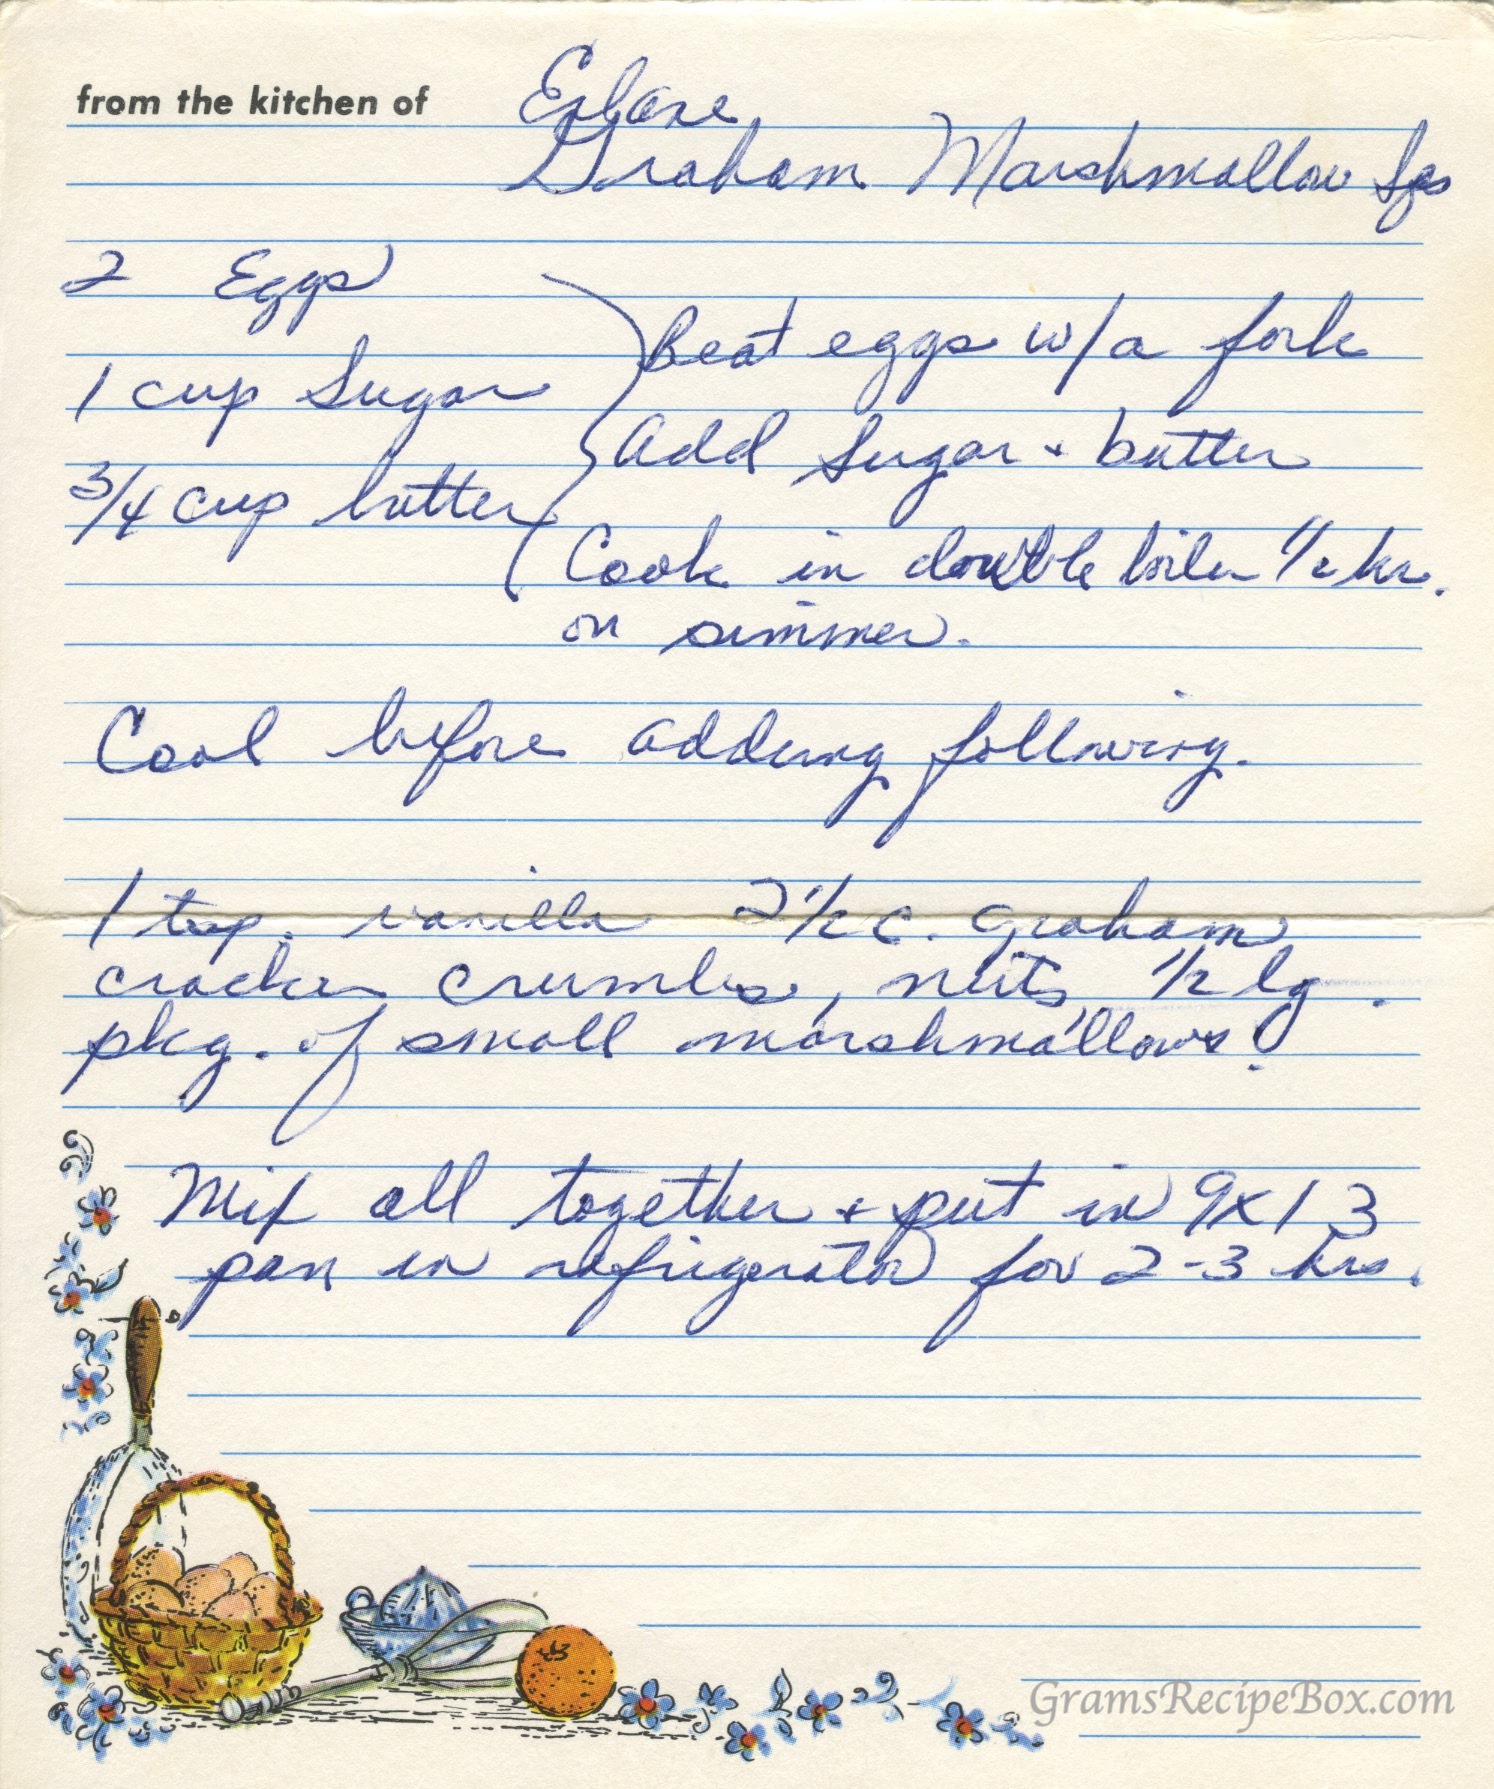 from the kitchen of
Graham Marshmallow Sqs
2 Eggs
1 cup Sugar
3/4 cup butter
Beat eggs w/a fork
Add Sugar + butter
Cook in double boiler 1/2 hr.
on simmer.
Cool before adding following.
1 tsp. vanilla 2 1/2 c. Graham
cracker crumbs, nuts, 1/2 lg.
pkg. of small marshmallows!
Mix all together + put in 9x13
pan in refrigerator for 2-3 hrs.
GramsRecipeBox.com